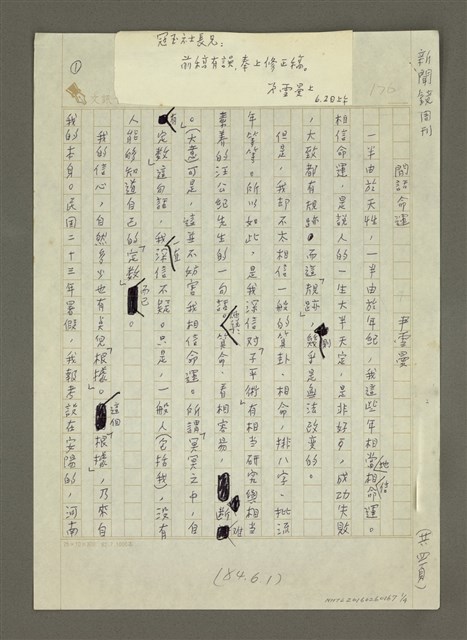 冠玉社長兄：
前稿有誤，奉上修正稿。
弟雪曼上
176
新聞鏡周刊
(共四頁)
閒話命運
尹雪曼
一半由於天性，一半由於年紀，我這些年相當地相信命運。
相信命運，是說人的一生大半天定，是非好歹，成功失敗
，大致都有規跡。而這「規跡」，則幾乎是無法改變的。
但是，我卻不太相信一般的算卦、相命，排八字、批流
年等等。所以如此，是我深信對「子平術」有相當研究與相當
素養的汪公紀先生的一句話。「算命、看相容易，斷難
。」(大意)可是，這並不妨害我相信命運。所謂「冥冥之中，自
有定數」這句話，我一直深信不疑。只是，一般人(包括我)，沒有
人能夠知道自己的「定數」而已。
我的信心，自然多少也有點兒「根據」。這個「根據」，乃來自
我的本身。民國二十三年暑假，我報考設在安陽的，河南
①
(84.6.1)